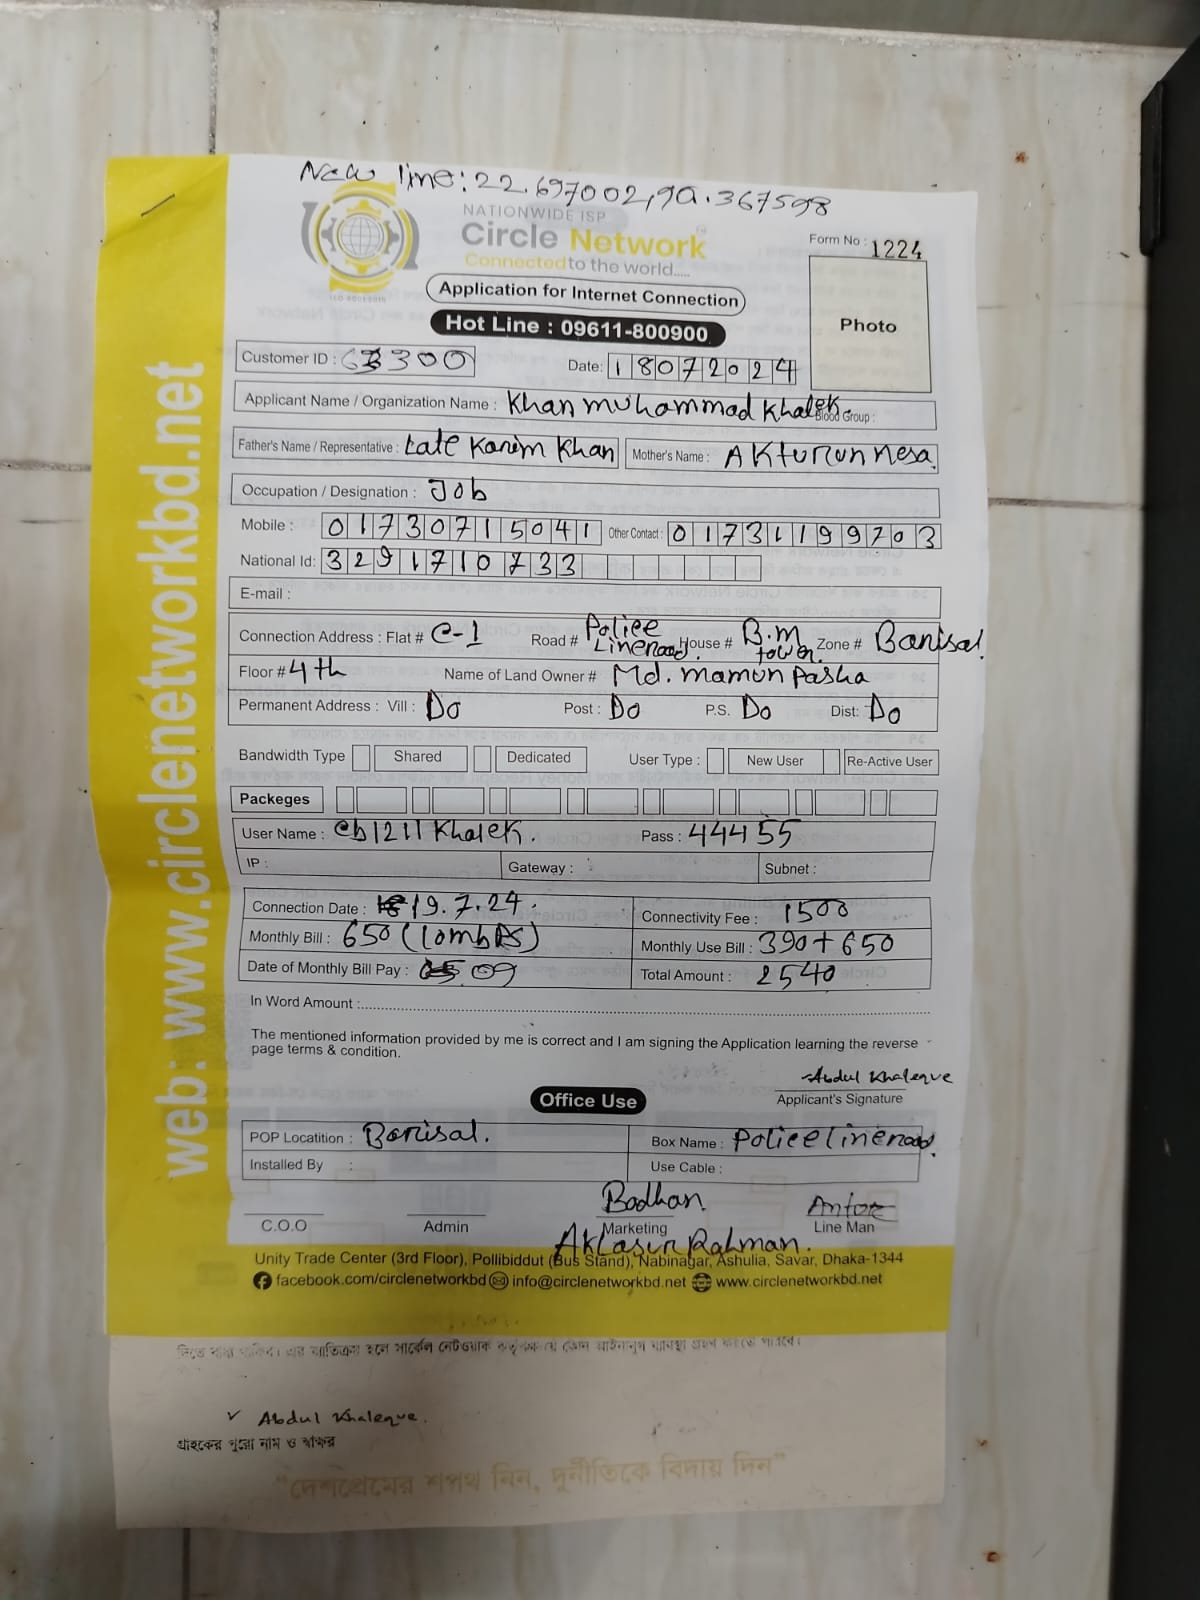 New line: 22.697002, 90.367598
NATIONWIDE ISP
Circle Network
Connected to the world.....
Form No : 1224
Application for Internet Connection
Hot Line : 09611-800900
Photo
Customer ID : 300
Date: 18072024
Applicant Name / Organization Name : Khan muhammad Khalek. Blood Group :
Father's Name / Representative : Late Karim Khan Mother's Name : Akturun nesa.
Occupation / Designation : Job
Mobile : 01730715041 Other Contact : 01731199703
National Id: 3291710733
E-mail :
Connection Address : Flat # C-1 Road # Police Lineroad. House # B.m tower. Zone # Barisal.
Floor # 4th Name of Land Owner # Md. mamun Pasha
Permanent Address : Vill : Do Post : Do P.S. Do Dist: Do
Bandwidth Type Shared Dedicated User Type : New User Re-Active User
Packeges
User Name : cb1211 Khalek. Pass : 44455
IP : Gateway : Subnet :
Connection Date : 19.7.24. Connectivity Fee : 1500
Monthly Bill : 650 (10mbps) Monthly Use Bill : 390+650
Date of Monthly Bill Pay : 09 Total Amount : 2540
In Word Amount :
The mentioned information provided by me is correct and I am signing the Application learning the reverse
page terms & condition.
Abdul Khaleque
Applicant's Signature
Office Use
POP Locatition : Barisal. Box Name : Policelineroad.
Installed By : Use Cable :
Bodhan
C.O.O Admin Marketing Line Man
Rahman.
Unity Trade Center (3rd Floor), Pollibiddut (Bus Stand), Nabinagar, Ashulia, Savar, Dhaka-1344
facebook.com/circlenetworkbd info@circlenetworkbd.net www.circlenetworkbd.net
web: www.circlenetworkbd.net
✓ Abdul Khaleque.
গ্রাহকের পুরো নাম ও স্বাক্ষর
"দেশপ্রেমের শপথ নিন, দুর্নীতিকে বিদায় দিন"